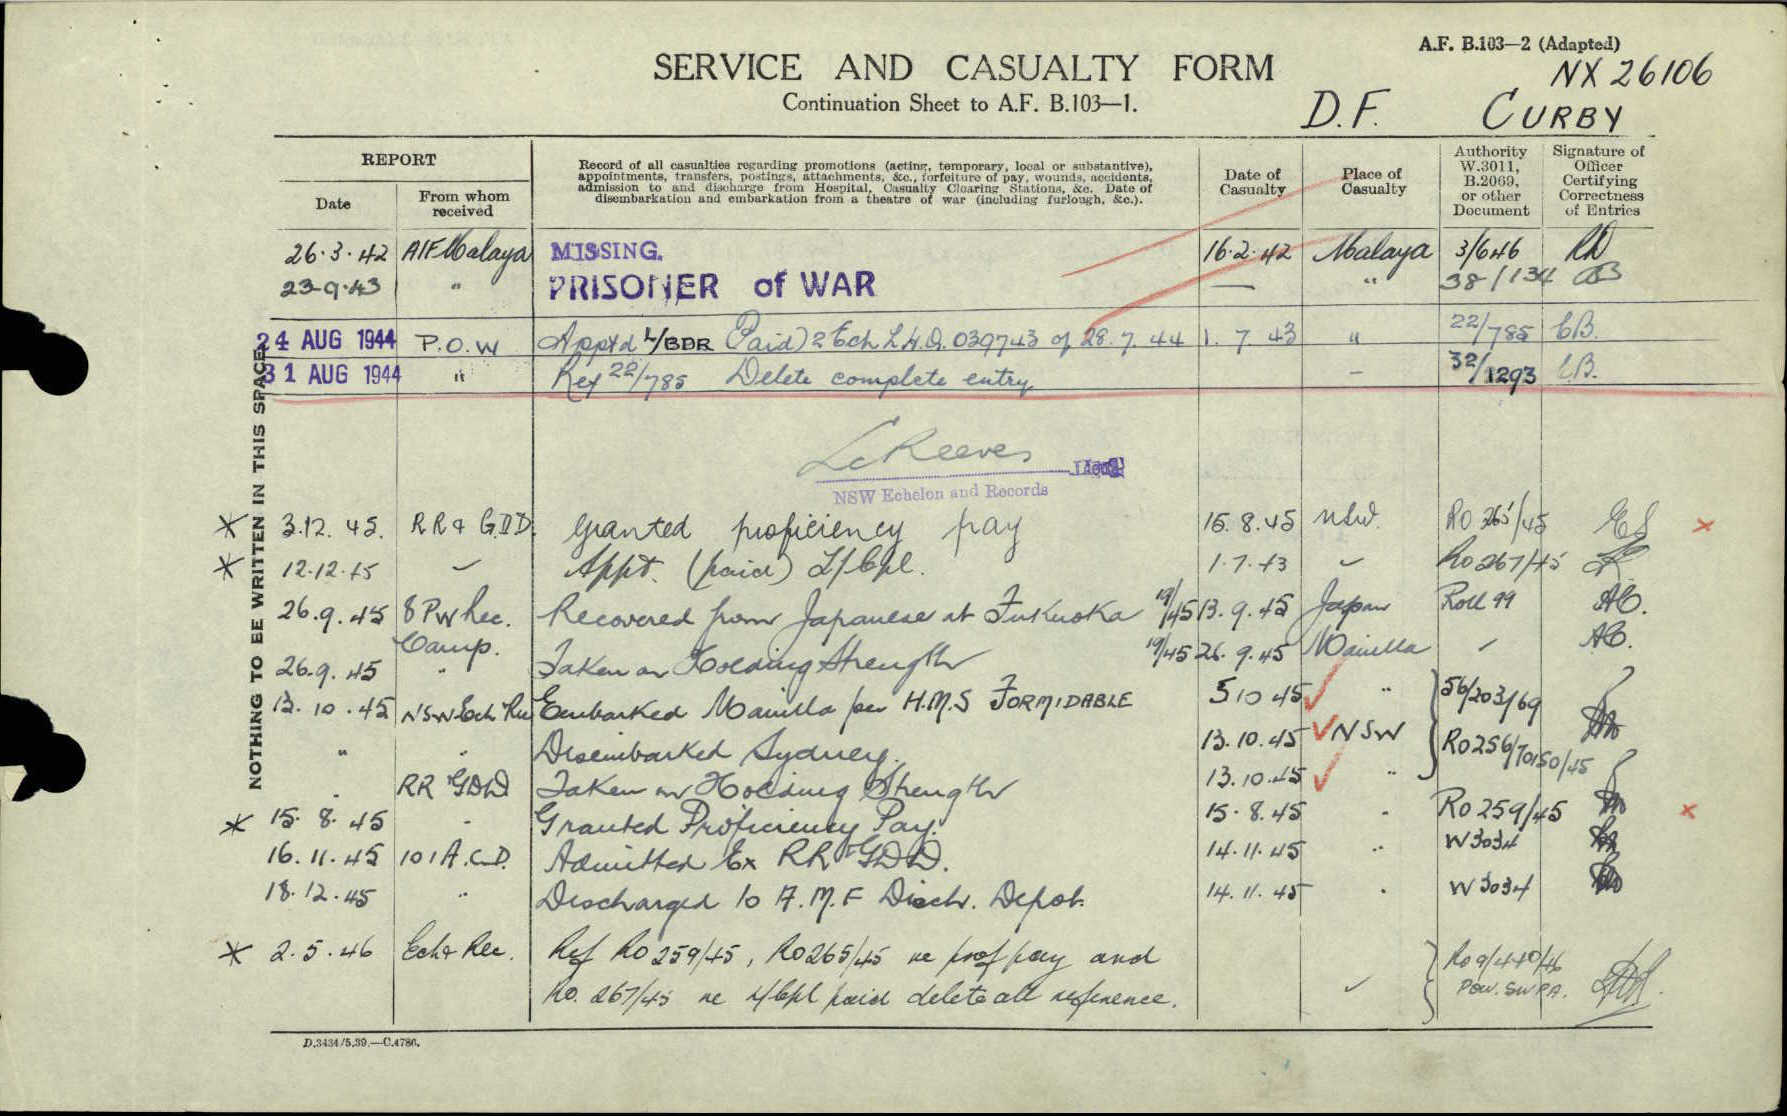 A.F. B.103—2 (Adapted)
SERVICE AND CASUALTY FORM
NX 26106
Continuation Sheet to A.F. B.103—1.
D.F. CURBY
REPORT
Date
From whom received
Record of all casualties regarding promotions (acting, temporary, local or substantive),
appointments, transfers, postings, attachments, &c., forfeiture of pay, wounds, accidents,
admission to and discharge from Hospital, Casualty Clearing Stations, &c. Date of
disembarkation and embarkation from a theatre of war (including furlough, &c.).
Date of Casualty
Place of Casualty
Authority W.3011, B.2069, or other Document
Signature of Officer Certifying Correctness of Entries
26.3.42 AIF Malaya MISSING. 16.2.42 Malaya 3/646
23-9-43 " PRISONER of WAR — " 38/134
24 AUG 1944 P.O.W Apptd L/BDR (Paid) 2 Ech L.H.Q. 039743 of 28.7.44 1.7.43 " 22/785 EB.
31 AUG 1944 " Ref 22/785 Delete complete entry — 32/1293 EB.
NOTHING TO BE WRITTEN IN THIS SPACE
L C Reeves
NSW Echelon and Records
* 3.12.45. RR & GDD. Granted proficiency pay 15.8.45 NSW. RO 265/45 x
* 12.12.45 Appt. (paid) L/Cpl. 1.7.43 RO 267/45
26.9.45 8 PW Rec. Camp. Recovered from Japanese at Fukuoka 19/45 13.9.45 Japan Roll 99 AC.
26.9.45 " Taken on Holding Strength 19/45 26.9.45 Manilla AC.
13.10.45 NSW Ech & Rec Embarked Manilla per H.M.S FORMIDABLE 5 10 45 " 56/203/69
" " Disembarked Sydney. 13.10.45 NSW RO 256/70150/45
" RR & GDD Taken on Holding Strength 13.10.45 "
* 15.8.45 " Granted Proficiency Pay. 15.8.45 " RO 259/45 x
16.11.45 101 A.C.D. Admitted Ex RR & GDD. 14.11.45 " W3034
18.12.45 " Discharged to A.M.F Disch. Depot. 14.11.45 " W3034
* 2.5.46 Ech & Rec. Ref RO 259/45, RO 265/45 re prof pay and RO 9/440/46
RO. 267/45 re L/Cpl paid delete all reference. POW. SWPA.
D.3434/5.39.—C.4786.